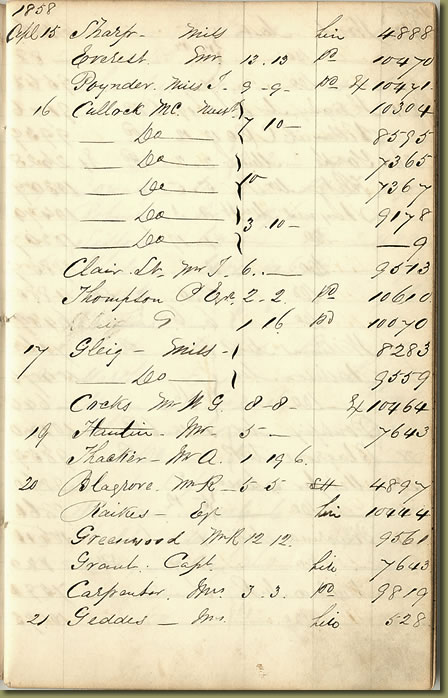 1858
Apl 15 Sharp - Miss Lin 4888
Everest Mr. 13.13 pd 10470
Poynder. Miss J. 9-9- pd & 10471
16 Cullock Mc. 7 10- 10304
Do 8595
Do 7365
Do 10 7367
Do 3.10- 9178
Do 9
Clair. St. Mr J. 6.- 9513
Thompson P Esq. 2-2. pd 10610
G 1 16 pd 10070
17 Gleig - Miss - 8283
Do 9559
Cocks Mr W G. 8-8- & 10464
19 Huntin - Mr - 5- 7643
Thacker - Mr A. 1 19 6.
20 Blagrove. Mr R - 5 5 4897
Raikes - Esq Lin 10444
Greenwood Mr R 12 12. 9561
Grant. Capt. Lin 7643
Carpenter. Mrs 3.3. pd 9819
21 Geddes - Mrs. Lin 528